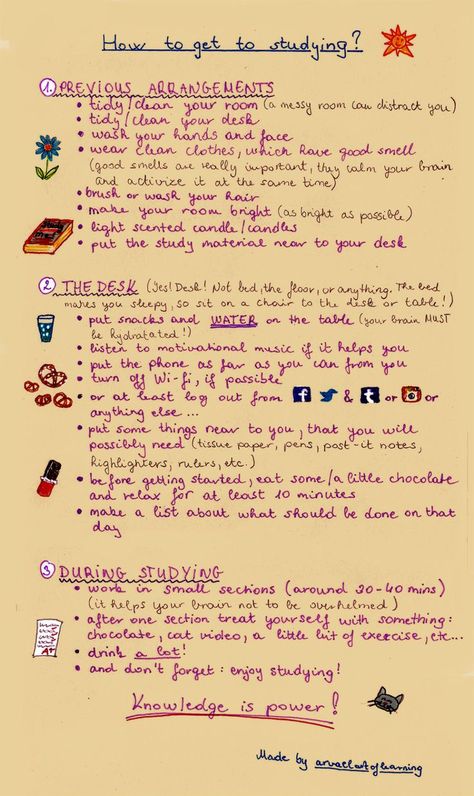 How to get to studying?
1. PREVIOUS ARRANGEMENTS
• tidy/clean your room (a messy room can distract you)
• tidy/clean your desk
• wash your hands and face
• wear clean clothes, which have good smell
(good smells are really important, they calm your brain
and activize it at the same time)
• brush or wash your hair
• make your room bright (as bright as possible)
• light scented candle/candles
• put the study material near to your desk
2. THE DESK (Yes! Desk! Not bed, the floor, or anything. The bed
makes you sleepy, so sit on a chair to the desk or table!)
• put snacks and WATER on the table (your brain MUST
be hydratated!)
• listen to motivational music if it helps you
• put the phone as far as you can from you
• turn off Wi-fi, if possible
• or at least log out from f & t or or
anything else...
• put some things near to you, that you will
possibly need (tissue paper, pens, post-it notes,
highlighters, rulers, etc.)
• before getting started, eat some/a little chocolate
and relax for at least 10 minutes
• make a list about what should be done on that
day
3. DURING STUDYING
• work in small sections (around 20-40 mins)
(it helps your brain not to be overhelmed)
• after one section treat yourself with something:
chocolate, cat video, a little bit of exercise, etc...
• drink a lot!
A+
• and don't forget: enjoy studying!
Knowledge is power!
Made by